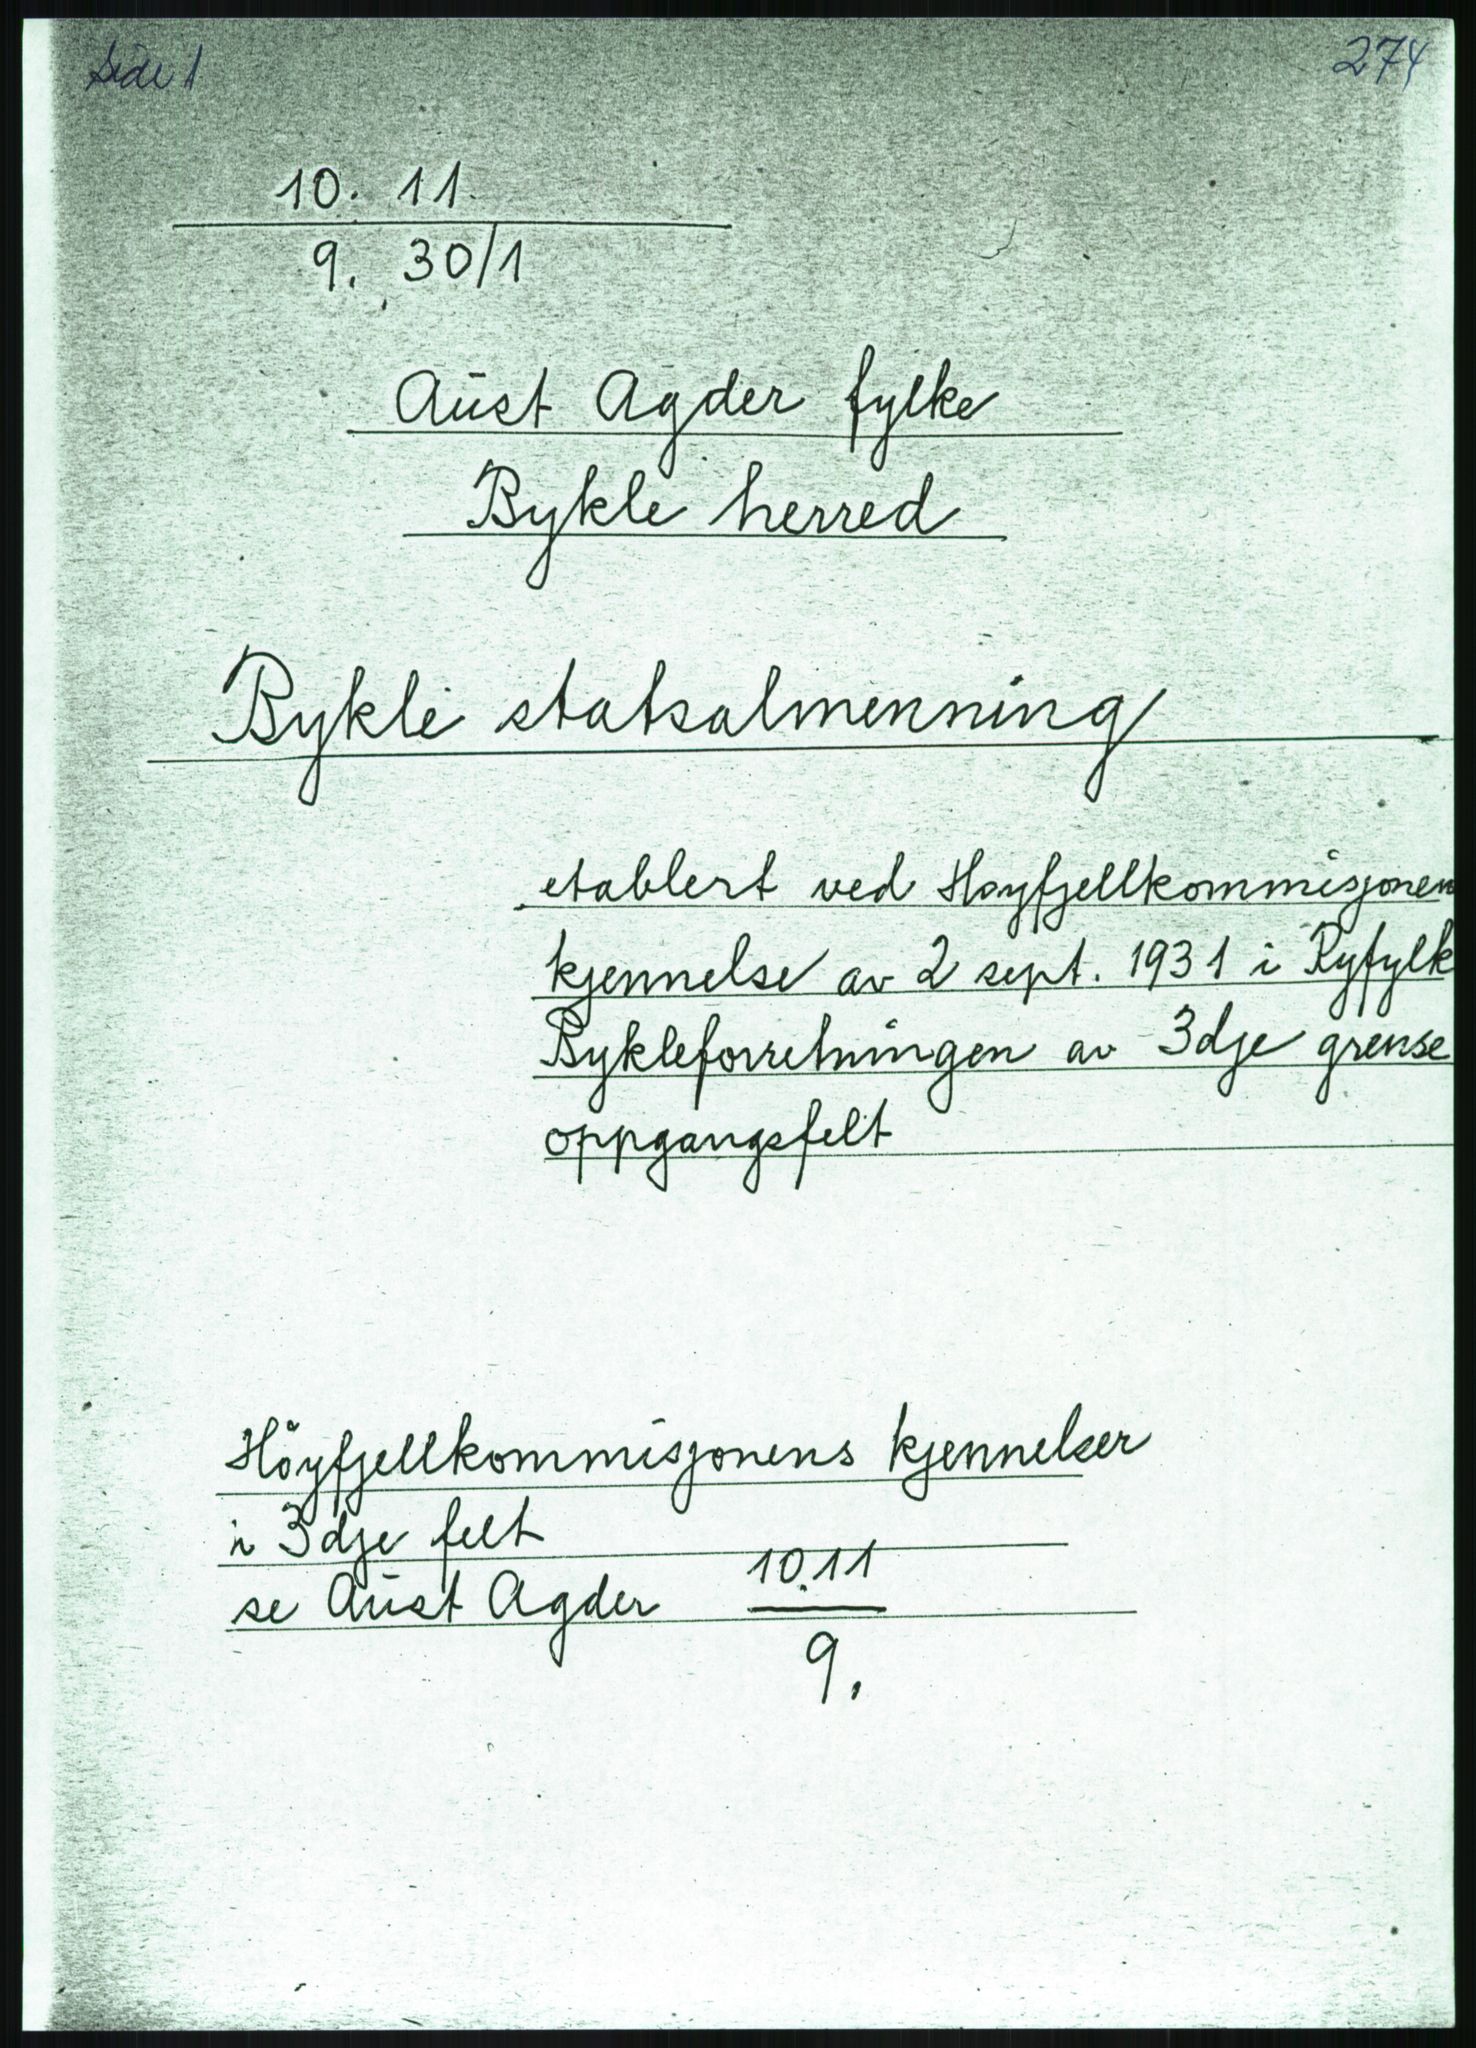 Side 1
274
10. 11.
9. 30/1
Aust Agder fylke
Bykle herred
Bykle statsalmenning
etablert ved Høyfjellkommisjonen
kjennelse av 2 sept. 1931 i Ryfylk
Bykleforretningen av 3dje grense
oppgangsfelt
Høyfjellkommisjonens kjennelser
i 3dje felt
se Aust Agder 10.11
9.